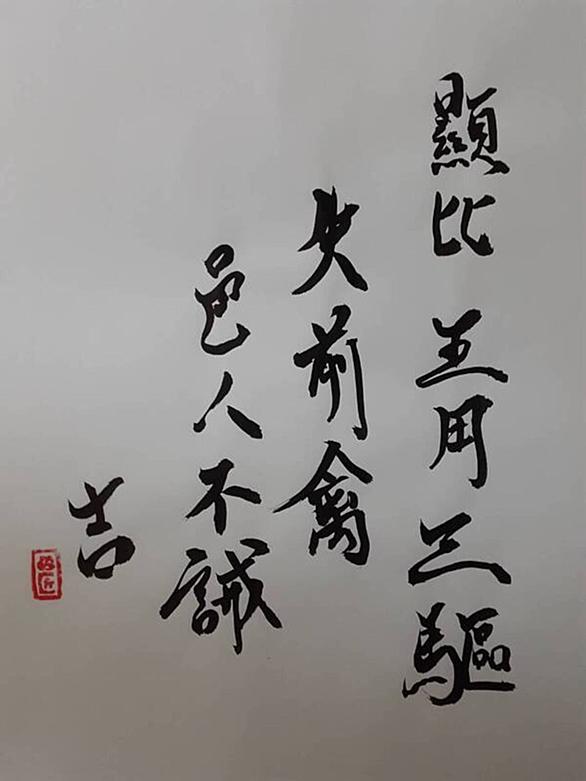 顯比 王用三驅
失前禽
邑人不誡
吉